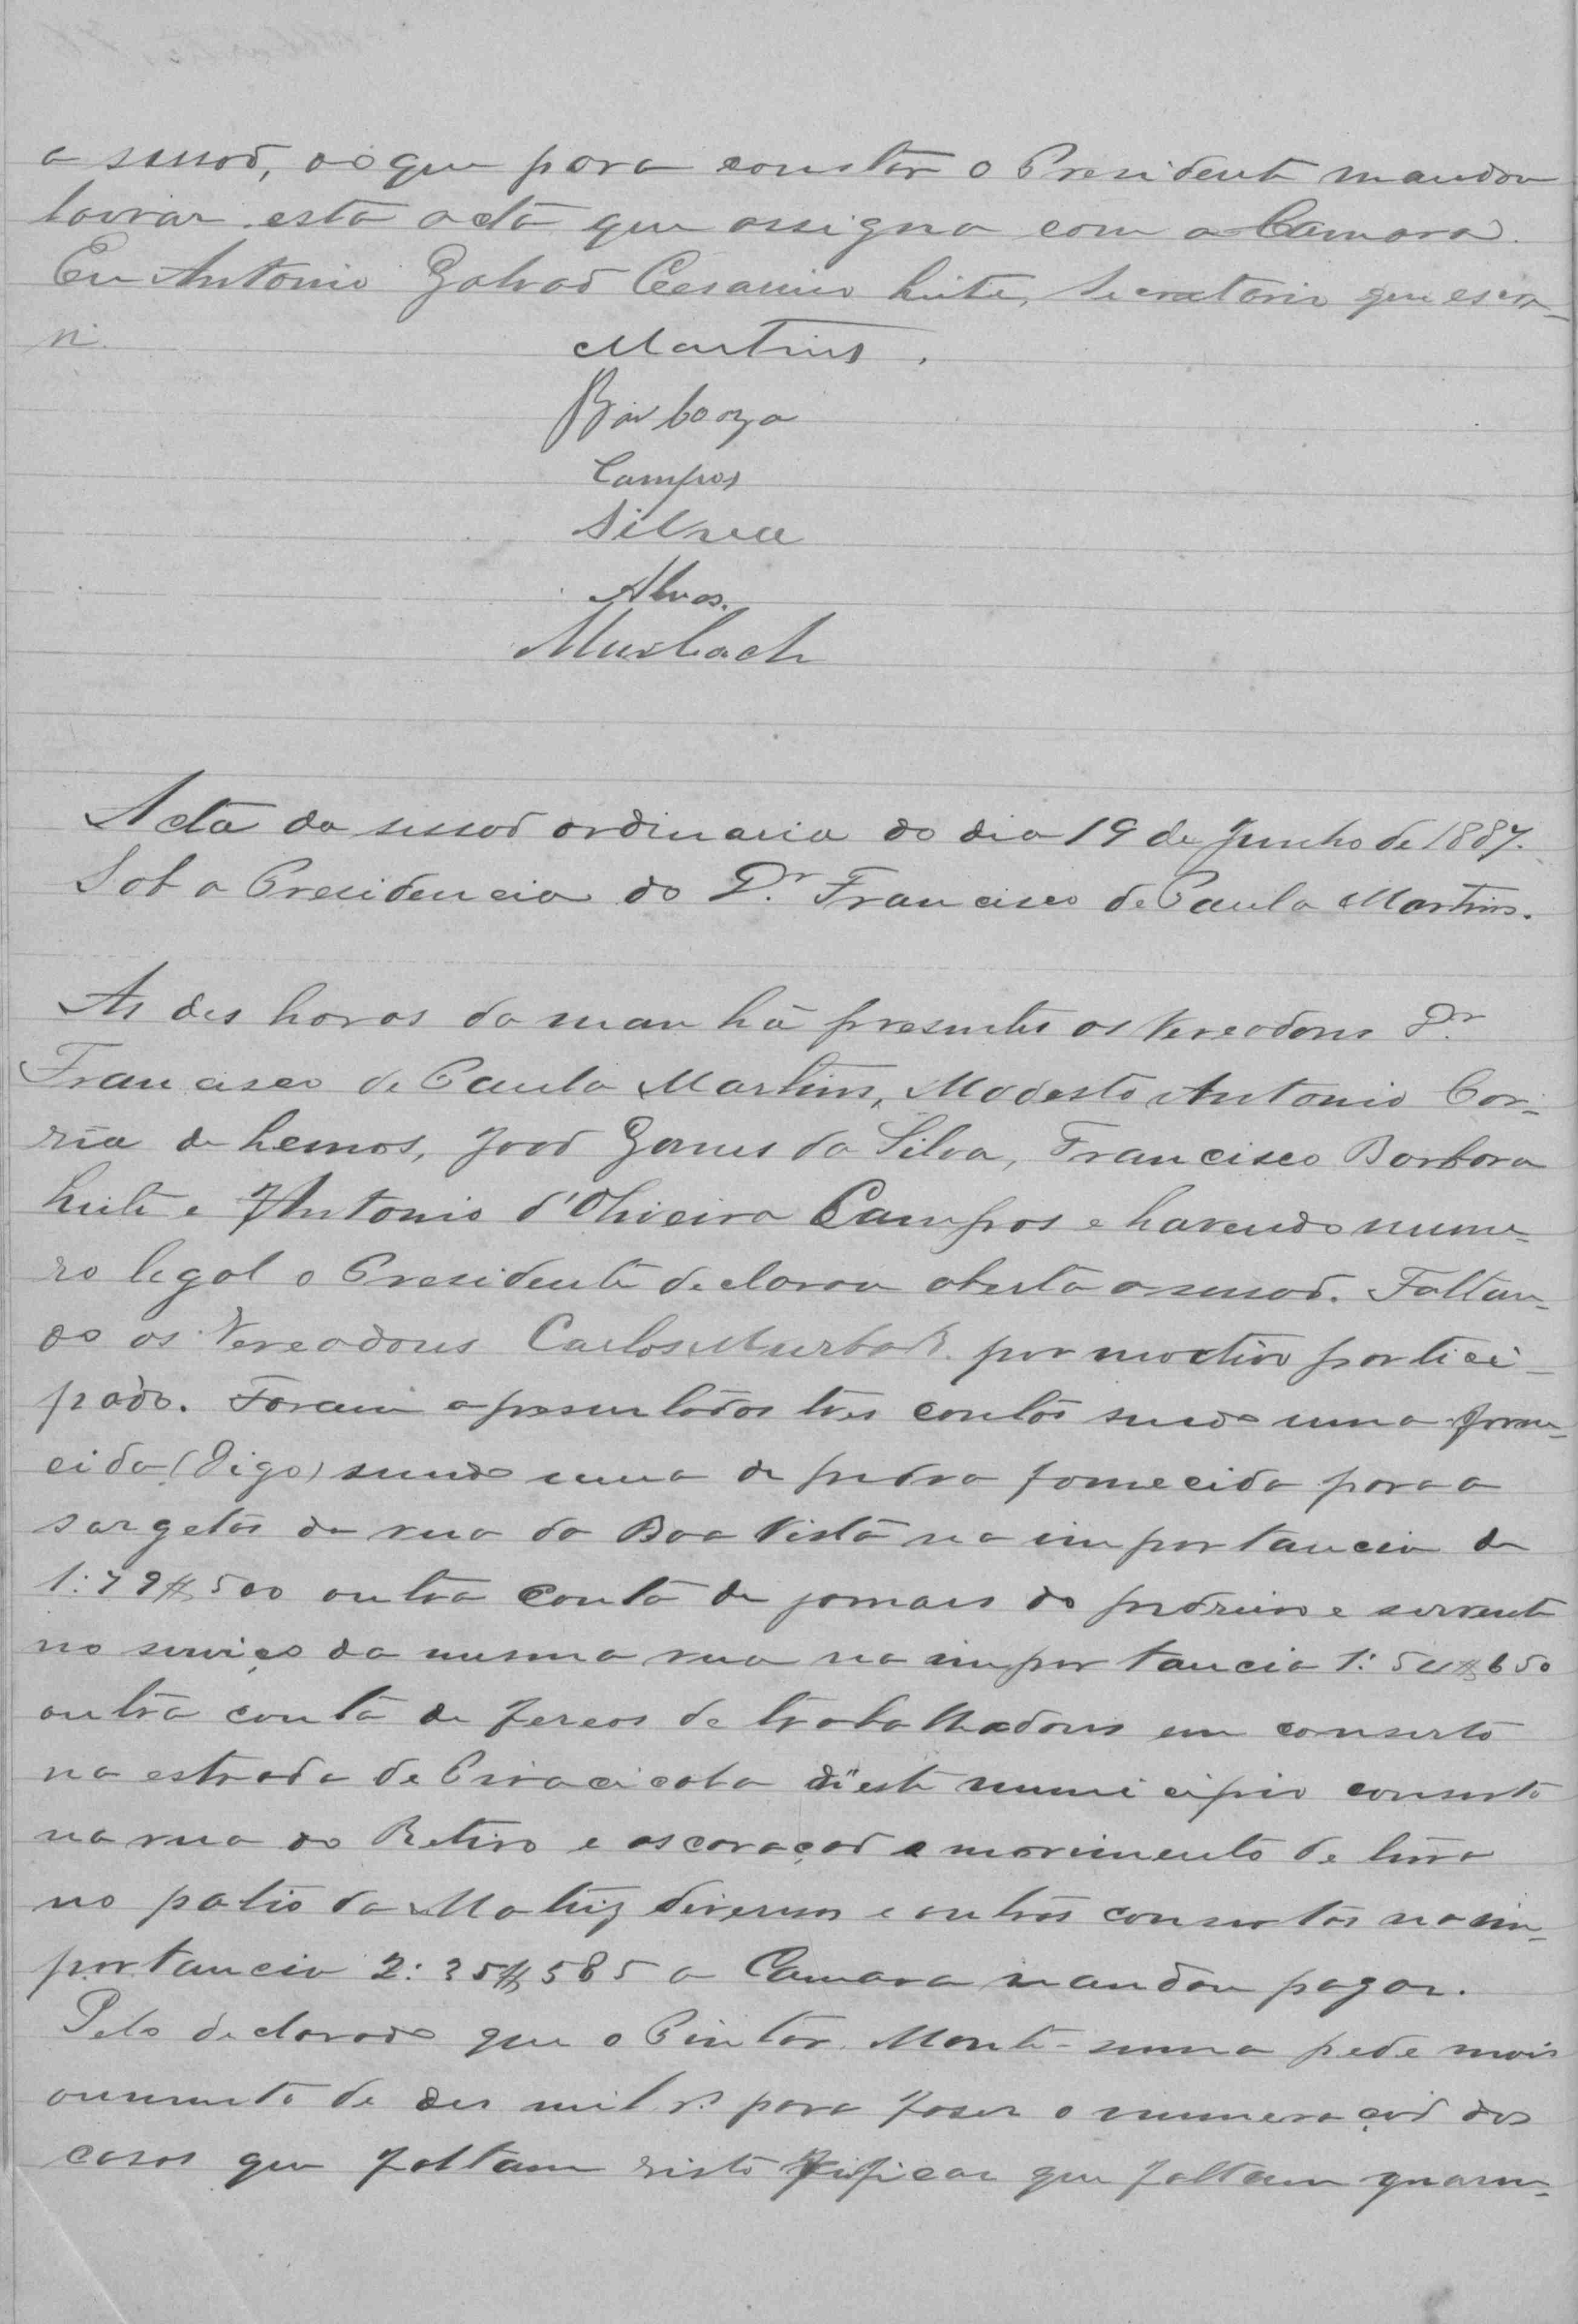 a sessaõ, ao que para constar o Presidente mandou
lavrar esta acta que assigna com a Camara.
Eu Antonio Galvaõ Cesarino Leite, Secretario que escre-
vi.
Martins.
Barboza
Campos
Silva
Alves.
Murbach
Acta da sessaõ ordinaria do dia 19 de Junho de 1887.
Sob a Presidencia do Dr. Francisco de Paula Martins.
As des horas da manhã presentes os Vereadores Dr.
Francisco de Paula Martins, Modesto Antonio Cor-
rêa de Lemos, Joaõ Gomes da Silva, Francisco Barboza
Leite e Antonio d'Oliveira Campos e havendo nume-
ro legal o Presidente declarou aberta a sessaõ. Faltan-
do os Vereadores Carlos Murbach por motivo partici-
pado. Foram apresentados tres contas sendo uma forne-
cida (Digo) sendo uma de pedra fornecida para a
sargetas da rua da Boa Vista na importancia de
1:79$500 outra conta de jornaes do pedreiro e servente
no serviço da mesma rua na importancia 1:54$650
outra conta de fereos de trabalhadores em conserto
na estrada de Piracicaba d'este municipio conserto
na rua do Retiro e escavaçaõ e movimento de terra
no patio da Matriz diversos e outros consertos na im-
portancia 2:35$585 a Camara mandou pagar.
Pelo declarado que o Pintor Monte-suma pede mais
aumento de des mil rs para faser o numeraçaõ dos
casas que faltam visto ficar que faltam quaren-